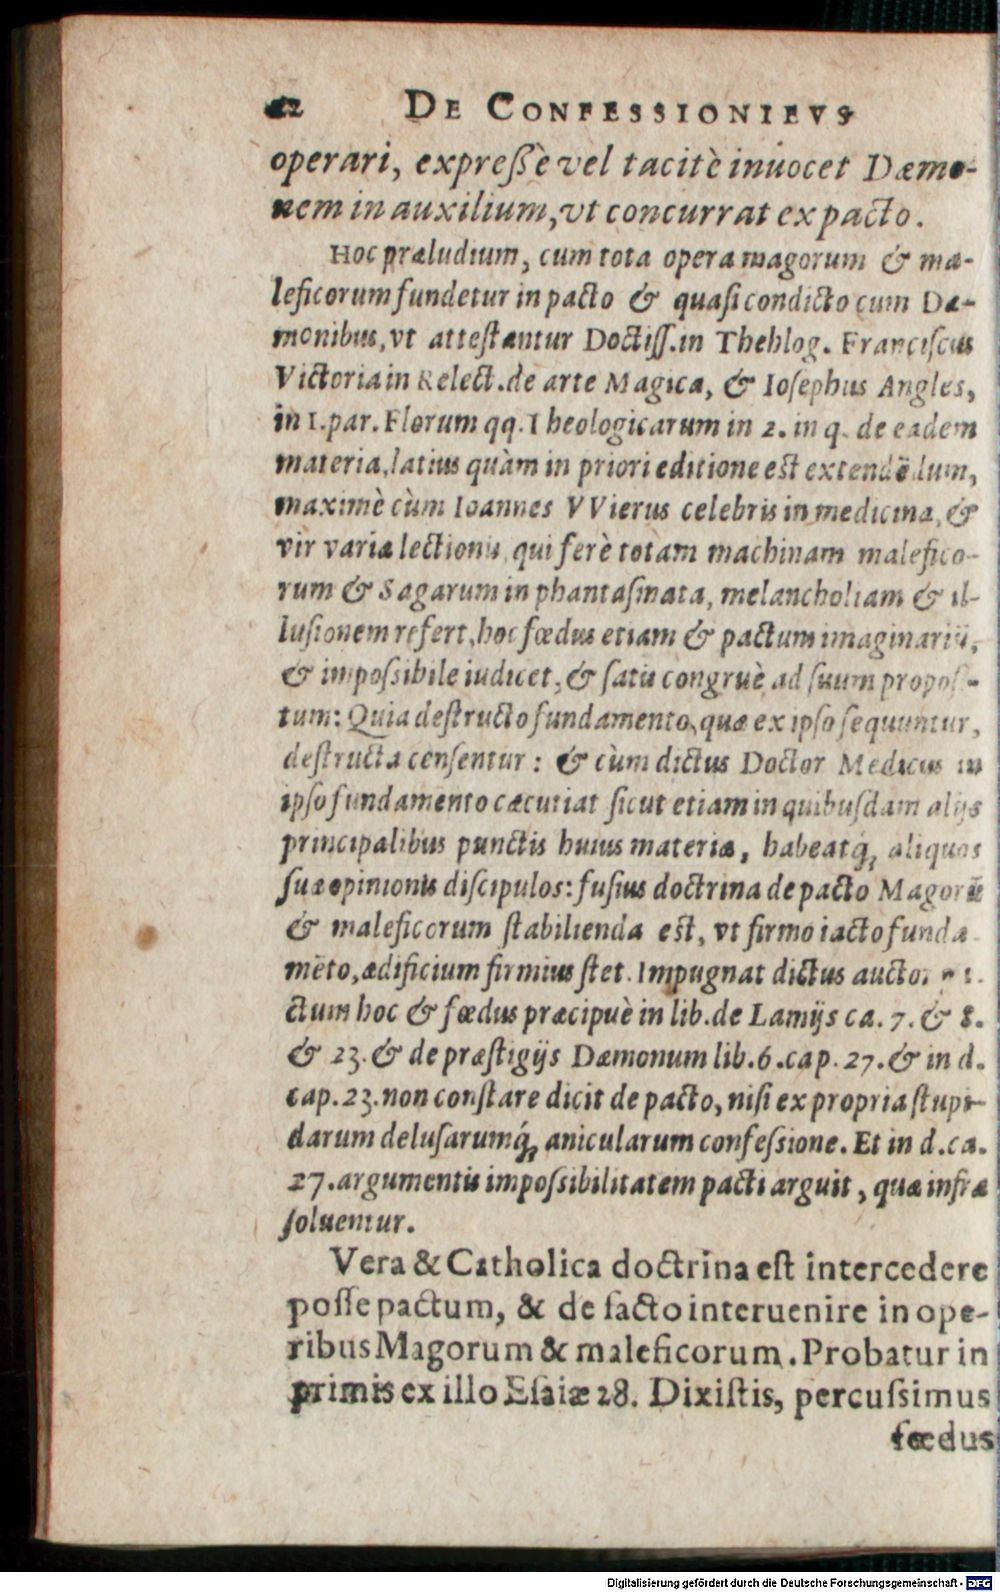 DE CONFESSIONIBVS
operari, expreſsè vel tacitè inuocet Dæmo-
nem in auxilium, vt concurrat ex pacto.
Hoc præludium, cum tota opera magorum & ma-
leficorum fundetur in pacto & quaſi condicto cum Dæ-
monibus, vt atteſtantur Doctiſſ. in Theblog. Franciſcus
Victoria in Relect. de arte Magica, & Ioſephus Angles,
in 1. par. Florum qq. Theologicarum in 2. in q. de eadem
materia, latius quàm in priori editione est extendēdum,
maximè cùm Ioannes VVierus celebris in medicina, &
vir variæ lectionis, qui ferè totam machinam malefico-
rum & Sagarum in phantaſmata, melancholiam & il-
luſionem refert, hoc fœdus etiam & pactum imaginariū,
& impoſsibile iudicet, & ſatis congruè ad ſuum propoſi-
tum: Quia deſtructo fundamento, quæ ex ipſo ſequuntur,
deſtructa cenſentur: & cùm dictus Doctor Medicus in
ipſo fundamento cæcutiat ſicut etiam in quibuſdam alijs
principalibus punctis huius materiæ, habeatq́; aliquos
ſuæ opinionis diſcipulos: fuſius doctrina de pacto Magorū
& maleficorum ſtabilienda est, vt firmo iacto funda-
mēto, ædificium firmius ſtet. Impugnat dictus auctor
ctum hoc & fœdus præcipuè in lib. de Lamijs ca. 7. & 8.
& 23. & de præſtigijs Dæmonum lib. 6. cap. 27. & in d.
cap. 23. non conſtare dicit de pacto, niſi ex propria ſtupi-
darum deluſarumq́; anicularum confeſsione. Et in d. ca.
27. argumentis impoſsibilitatem pacti arguit, quæ infrà
ſoluentur.
Vera & Catholica doctrina eſt intercedere
poſſe pactum, & de facto interuenire in ope-
ribus Magorum & maleficorum. Probatur in
primis ex illo Eſaiæ 28. Dixiſtis, percuſsimus
fœdus
Digitalisierung gefördert durch die Deutsche Forschungsgemeinschaft - DFG